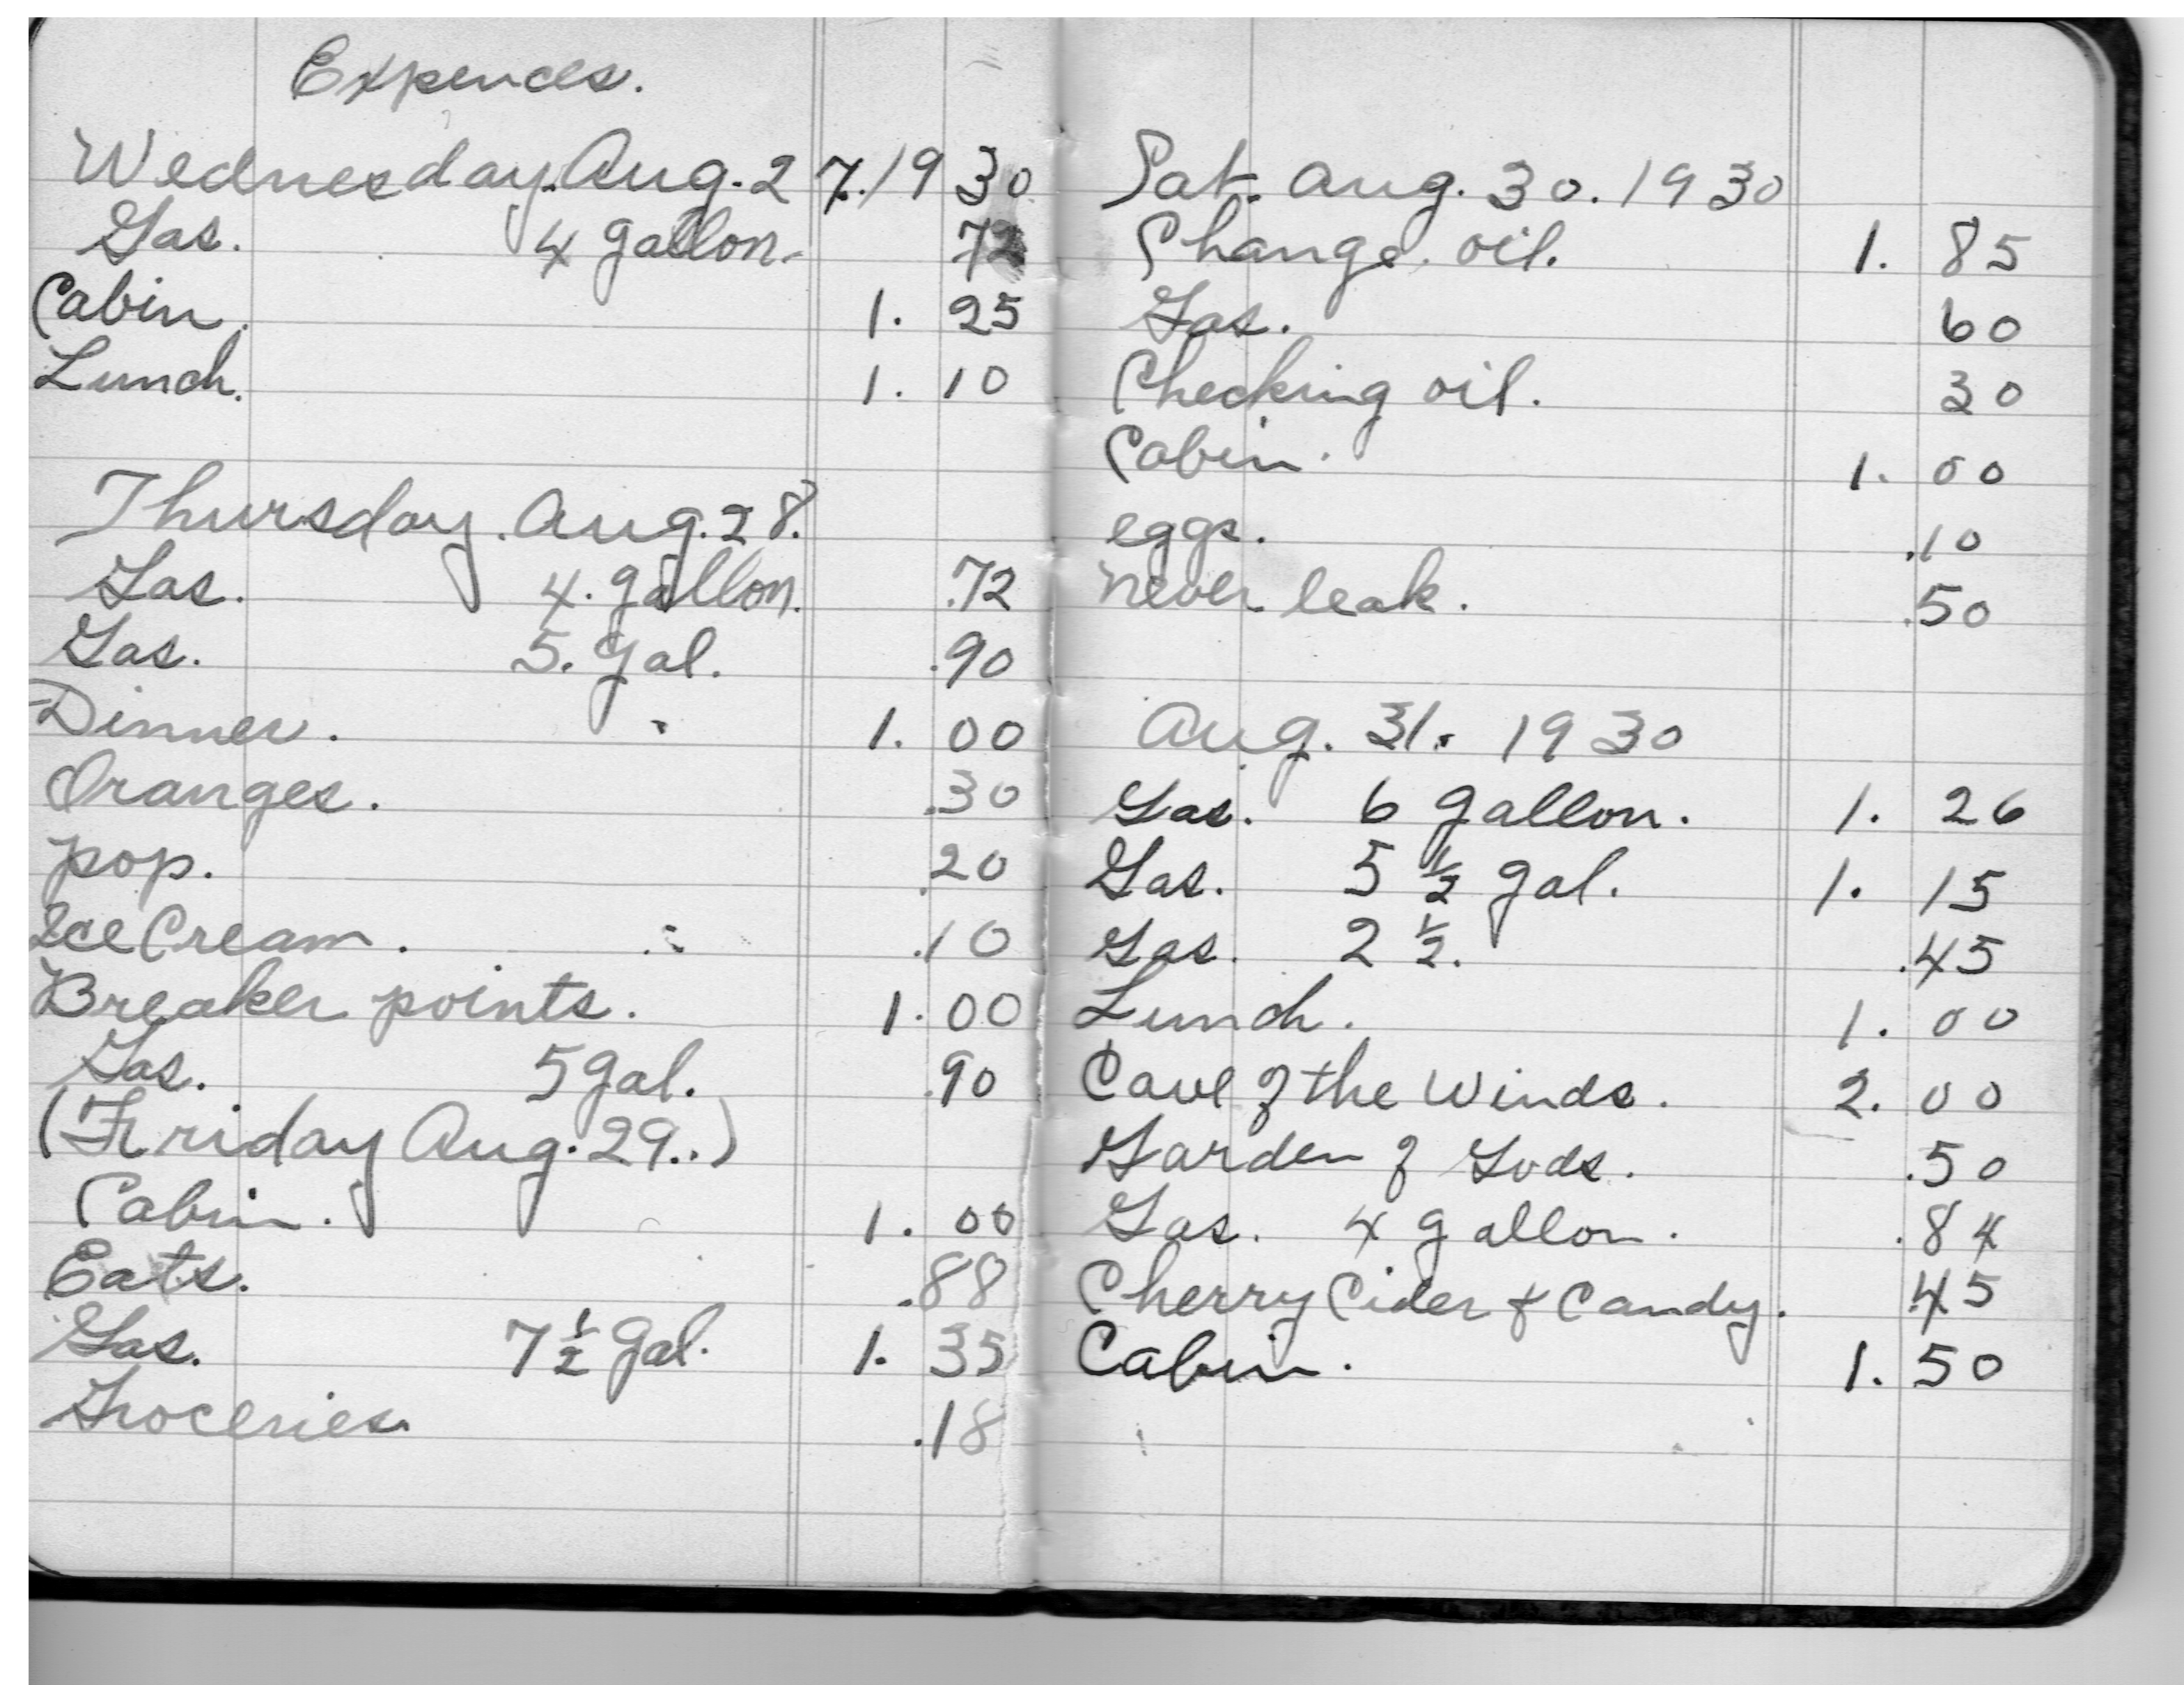 Expences.
Wednesday. Aug. 27. 1930
Gas. 4 gallon. 72
Cabin. 1. 25
Lunch. 1. 10
Thursday. Aug. 28.
Gas. 4. gallon. .72
Gas. 5. gal. .90
Dinner. 1. 00
Oranges. .30
pop. .20
Ice Cream. .10
Breaker points. 1. 00
Gas. 5 gal. .90
(Friday Aug. 29..)
Cabin. 1. 00
Eats. .88
Gas. 7 1/2 gal. 1. 35
Groceries. .18
Sat. Aug. 30. 1930
Change. oil. 1. 85
Gas. 60
Checking oil. 30
Cabin. 1. 00
eggs. .10
never leak. .50
Aug. 31. 1930
Gas. 6 gallon. 1. 26
Gas. 5 1/2 gal. 1. 15
Gas. 2 1/2. .45
Lunch. 1. 00
Cave of the Winds. 2. 00
Garden of Gods. .50
Gas. 4 gallon. .84
Cherry Cider & Candy. .45
Cabin. 1. 50